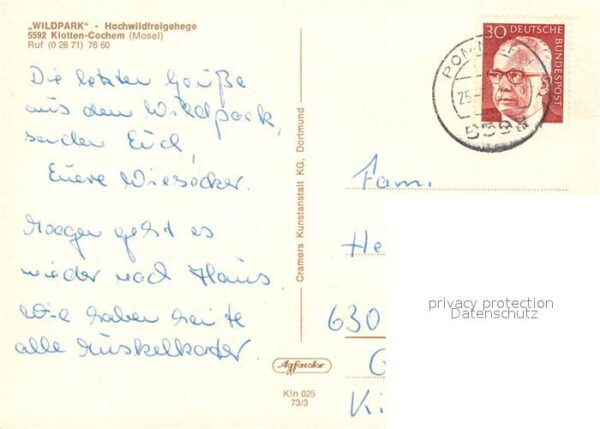 „WILDPARK" - Hochwildfreigehege
5592 Klotten-Cochem (Mosel)
Ruf (0 26 71) 76 60
Die letzten Grüße
aus dem Wildpark,
senden Euch,
Euere Wiesöcker.
Morgen geht es
wieder nach Haus.
Wir haben heute
alle Muskelkater.
Cramers Kunstanstalt KG, Dortmund
Agfacolor
Kln 025
73/3
30
DEUTSCHE
BUNDESPOST
25
Fam.
He
630
privacy protection
Datenschutz